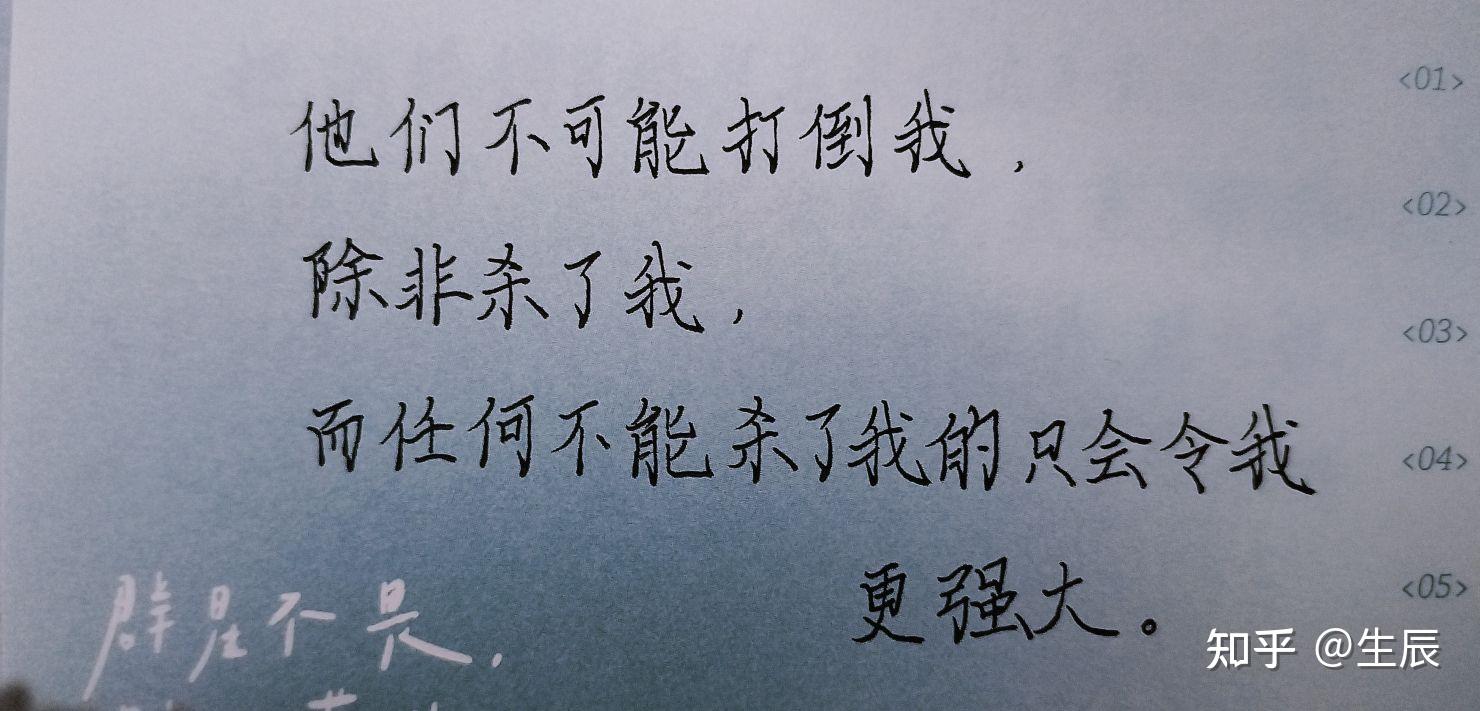 他们不可能打倒我，
除非杀了我，
而任何不能杀了我的只会令我
更强大。
<01>
<02>
<03>
<04>
<05>
群星不畏，
知乎 @生辰